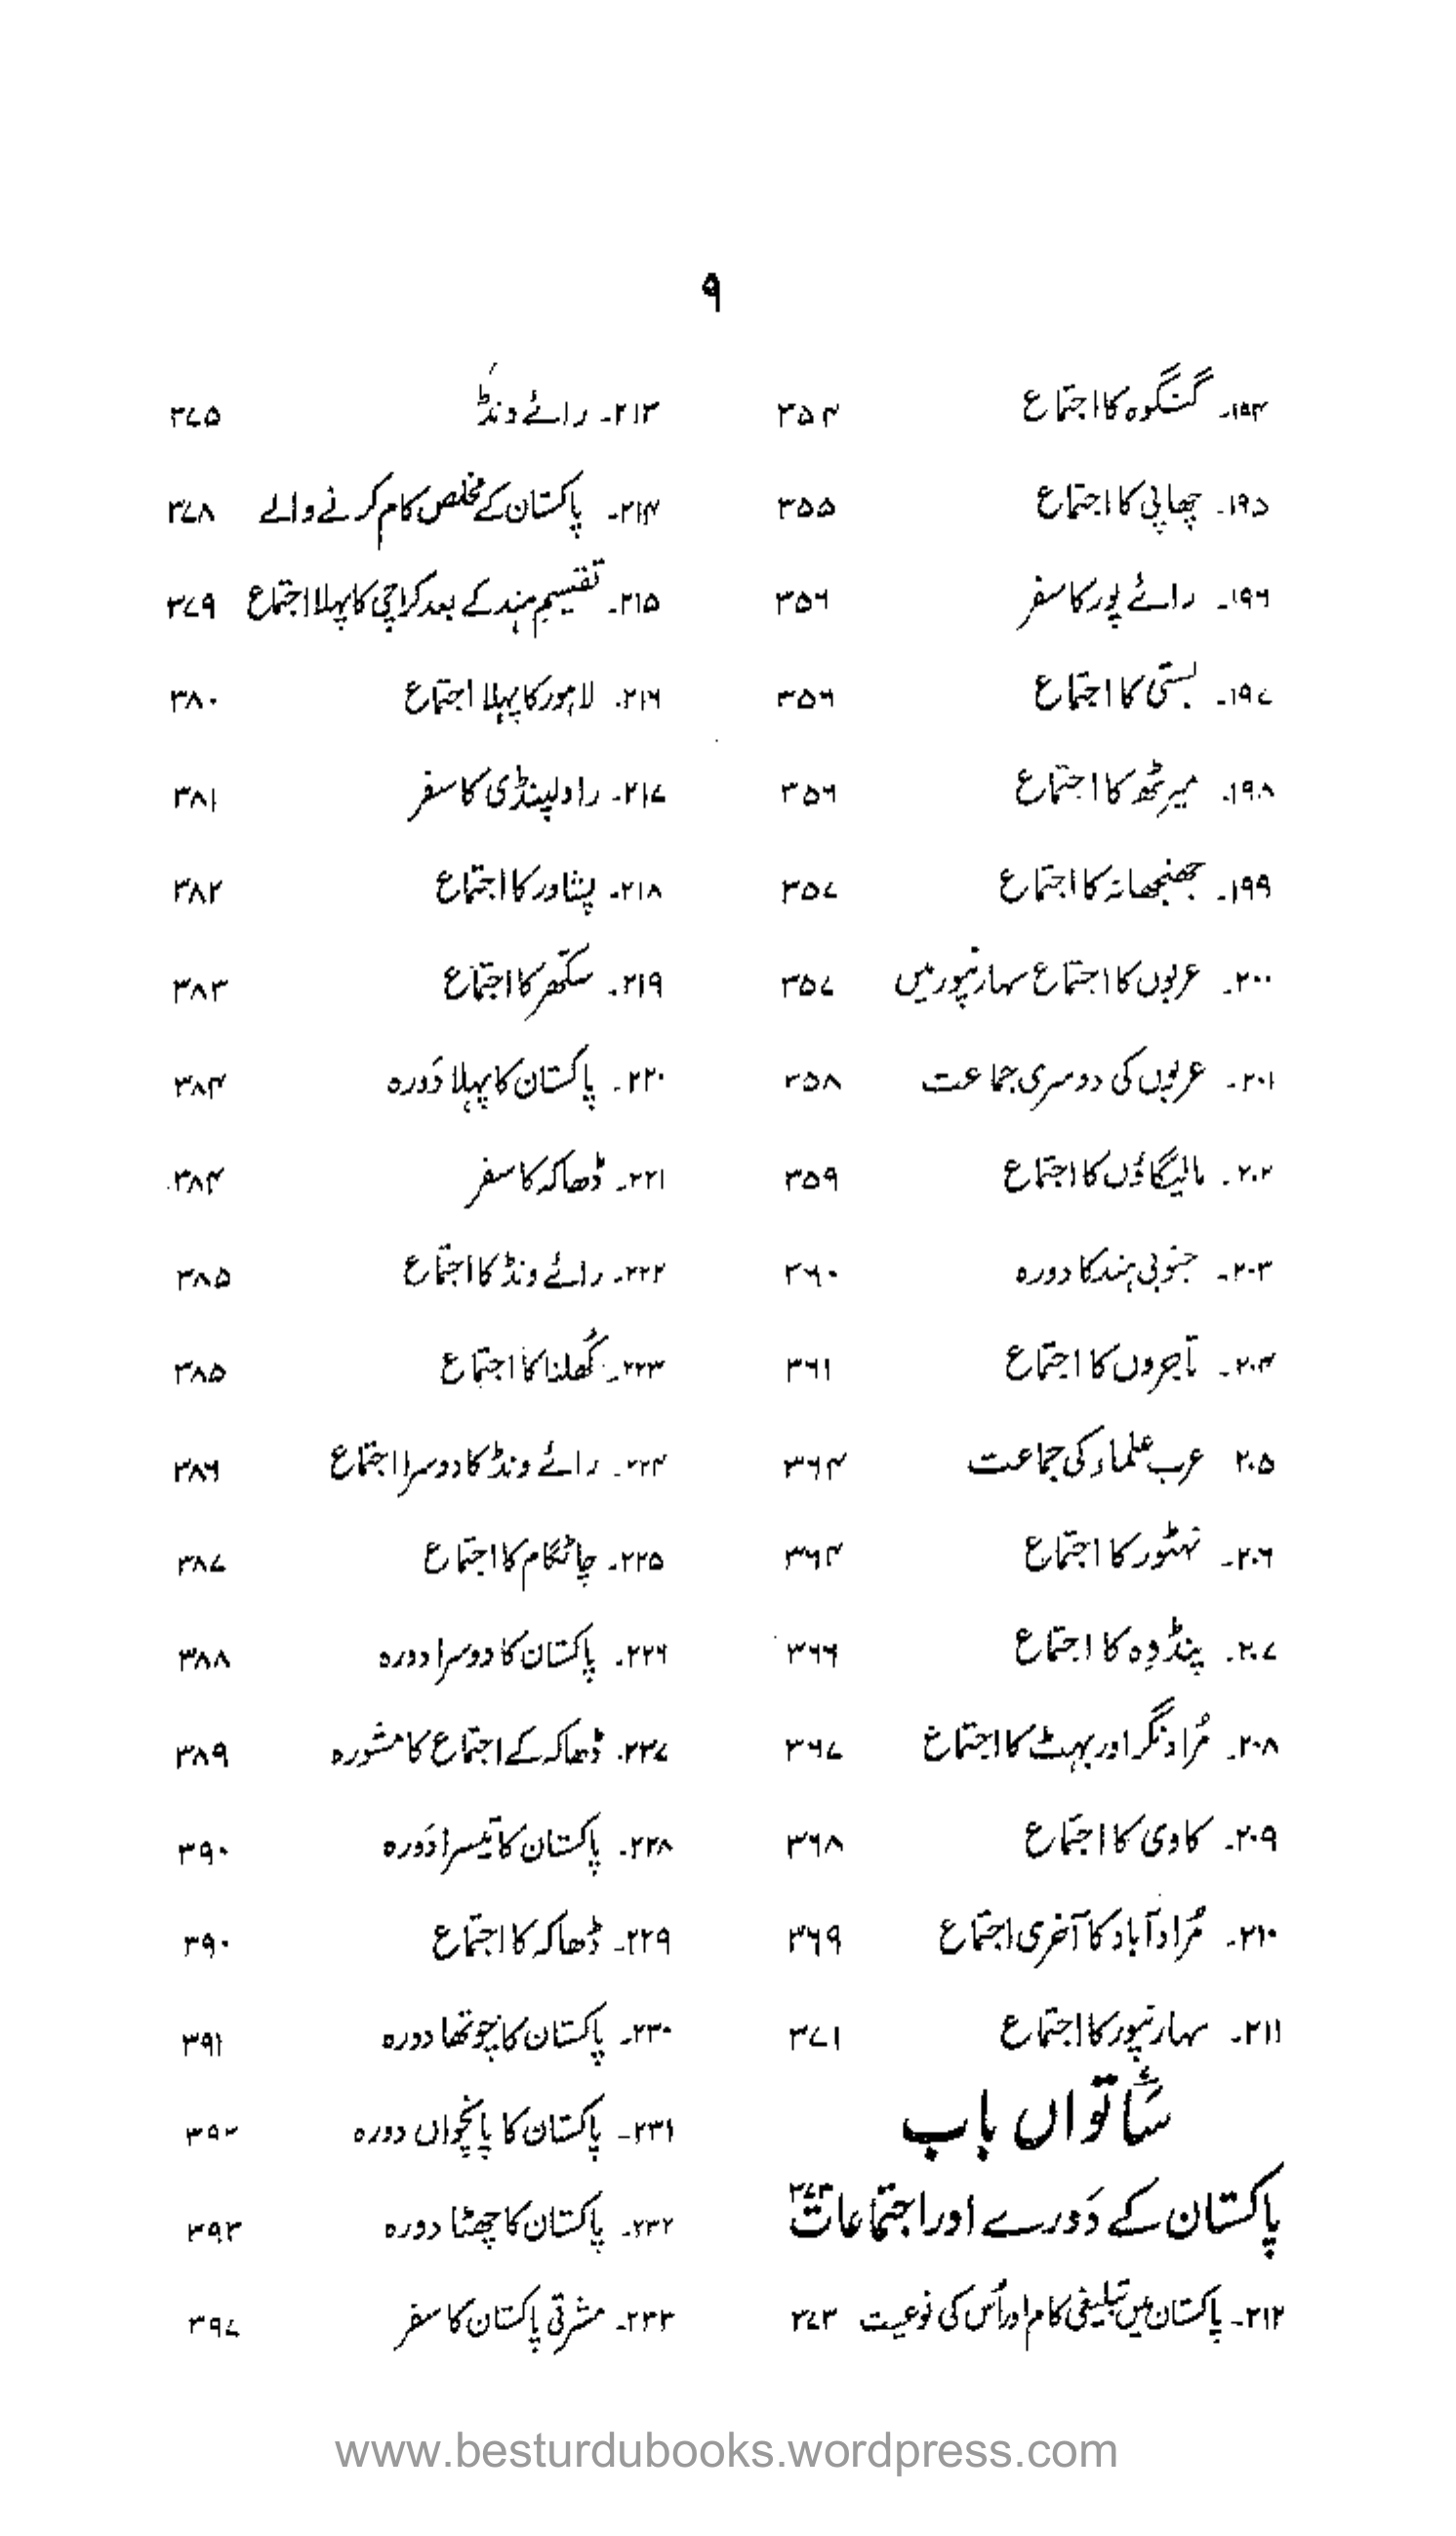 ۹
۱۹۴۔ گنگوہ کا اجتماع ۳۵۴
۱۹۵۔ چھاپی کا اجتماع ۳۵۵
۱۹۶۔ رائے پور کا سفر ۳۵۶
۱۹۷۔ بستی کا اجتماع ۳۵۶
۱۹۸۔ میرٹھ کا اجتماع ۳۵۶
۱۹۹۔ جھنجھانہ کا اجتماع ۳۵۷
۲۰۰۔ عربوں کا اجتماع سہارنپور میں ۳۵۷
۲۰۱۔ عربوں کی دوسری جماعت ۳۵۸
۲۰۲۔ مالیگاؤں کا اجتماع ۳۵۹
۲۰۳۔ جنوبی ہند کا دورہ ۳۶۰
۲۰۴۔ تاجروں کا اجتماع ۳۶۱
۲۰۵ عرب علماء کی جماعت ۳۶۴
۲۰۶۔ نہٹور کا اجتماع ۳۶۴
۲۰۷۔ پنڈوہ کا اجتماع ۳۶۶
۲۰۸۔ مُراد نگر اور بہٹ کا اجتماع ۳۶۷
۲۰۹۔ کاوی کا اجتماع ۳۶۸
۲۱۰۔ مُراد آباد کا آخری اجتماع ۳۶۹
۲۱۱۔ سہارنپور کا اجتماع ۳۷۱
ساتواں باب
پاکستان کے دَورے اور اجتماعات ۳۷۳
۲۱۲۔ پاکستان میں تبلیغی کام اور اُس کی نوعیت ۳۷۳
۲۱۳۔ رائے ونڈ ۳۷۵
۲۱۴۔ پاکستان کے مخلص کام کرنے والے ۳۷۸
۲۱۵۔ تقسیمِ ہند کے بعد کراچی کا پہلا اجتماع ۳۷۹
۲۱۶۔ لاہور کا پہلا اجتماع ۳۸۰
۲۱۷۔ راولپنڈی کا سفر ۳۸۱
۲۱۸۔ پشاور کا اجتماع ۳۸۲
۲۱۹۔ سکھر کا اجتماع ۳۸۳
۲۲۰۔ پاکستان کا پہلا دَورہ ۳۸۴
۲۲۱۔ ڈھاکہ کا سفر ۳۸۴
۲۲۲۔ رائے ونڈ کا اجتماع ۳۸۵
۲۲۳۔ کُھلنا کا اجتماع ۳۸۵
۲۲۴۔ رائے ونڈ کا دوسرا اجتماع ۳۸۶
۲۲۵۔ چاٹگام کا اجتماع ۳۸۷
۲۲۶۔ پاکستان کا دوسرا دورہ ۳۸۸
۲۲۷۔ ڈھاکہ کے اجتماع کا مشورہ ۳۸۹
۲۲۸۔ پاکستان کا تیسرا دَورہ ۳۹۰
۲۲۹۔ ڈھاکہ کا اجتماع ۳۹۰
۲۳۰۔ پاکستان کا چوتھا دورہ ۳۹۱
۲۳۱۔ پاکستان کا پانچواں دورہ ۳۹۲
۲۳۲۔ پاکستان کا چھٹا دورہ ۳۹۳
۲۳۳۔ مشرقی پاکستان کا سفر ۳۹۷
www.besturdubooks.wordpress.com